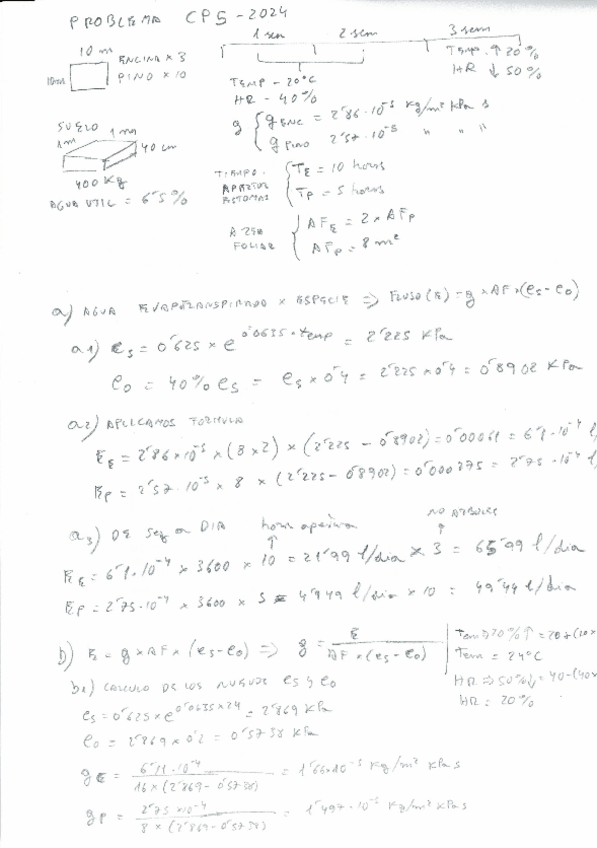 PROBLEMA CPS - 2024
1 sem 2 sem 3 sem
10 m
10m
ENCINA x 3
PINO x 10
TEMP - 20°C
HR - 40%
TEMP. ↑ 20%
HR ↓ 50%
g { g ENC = 2'86·10⁻⁵ kg/m² kPa s
g PINO 2'57·10⁻⁵ " " "
SUELO 1m
1m
40 cm
400 Kg
AGUA UTIL = 6'5%
TIEMPO APERTUR ESTOMAS { TE = 10 horas
TP = 5 horas
AREA FOLIAR { AFE = 2 x AFP
AFP = 8 m²
a) AGUA EVAPOTRANSPIRADO x ESPECIE => FLUJO (E) = g x AF x (es - eo)
a1) es = 0'625 x e^0'0635 x temp = 2'225 KPa
eo = 40% es = es x 0'4 = 2'225 x 0'4 = 0'8902 KPa
a2) APLICAMOS FORMULA
EE = 2'86 x 10⁻⁵ x (8 x 2) x (2'225 - 0'8902) = 0'00061 = 6'1·10⁻⁴ l/
EP = 2'57·10⁻⁵ x 8 x (2'225 - 0'8902) = 0'000275 = 2'75·10⁻⁴ l/
a3) DE seg a DIA horas apertura Nº ARBOLES
EE = 6'1·10⁻⁴ x 3600 x 10 = 21'99 l/dia x 3 = 65'99 l/dia
EP = 2'75·10⁻⁴ x 3600 x 5 = 4'949 l/dia x 10 = 49'49 l/dia
b) E = g x AF x (es - eo) => g = E / AF x (es - eo)
Tem => 20% ↑ = 20 + (20x
Tem = 24°C
HR => 50% ↓ = 40 - (40x
HR = 20%
b1) CALCULO DE LOS NUEVOS es y eo
es = 0'625 x e^0'0635 x 24 = 2'869 KPa
eo = 2'869 x 0'2 = 0'5738 KPa
gE = 6'11·10⁻⁴ / 16 x (2'869 - 0'5738) = 1'66x10⁻⁵ Kg/m² KPa s
gP = 2'75 x10⁻⁴ / 8 x (2'869 - 0'5738) = 1'497·10⁻⁵ Kg/m² KPa s